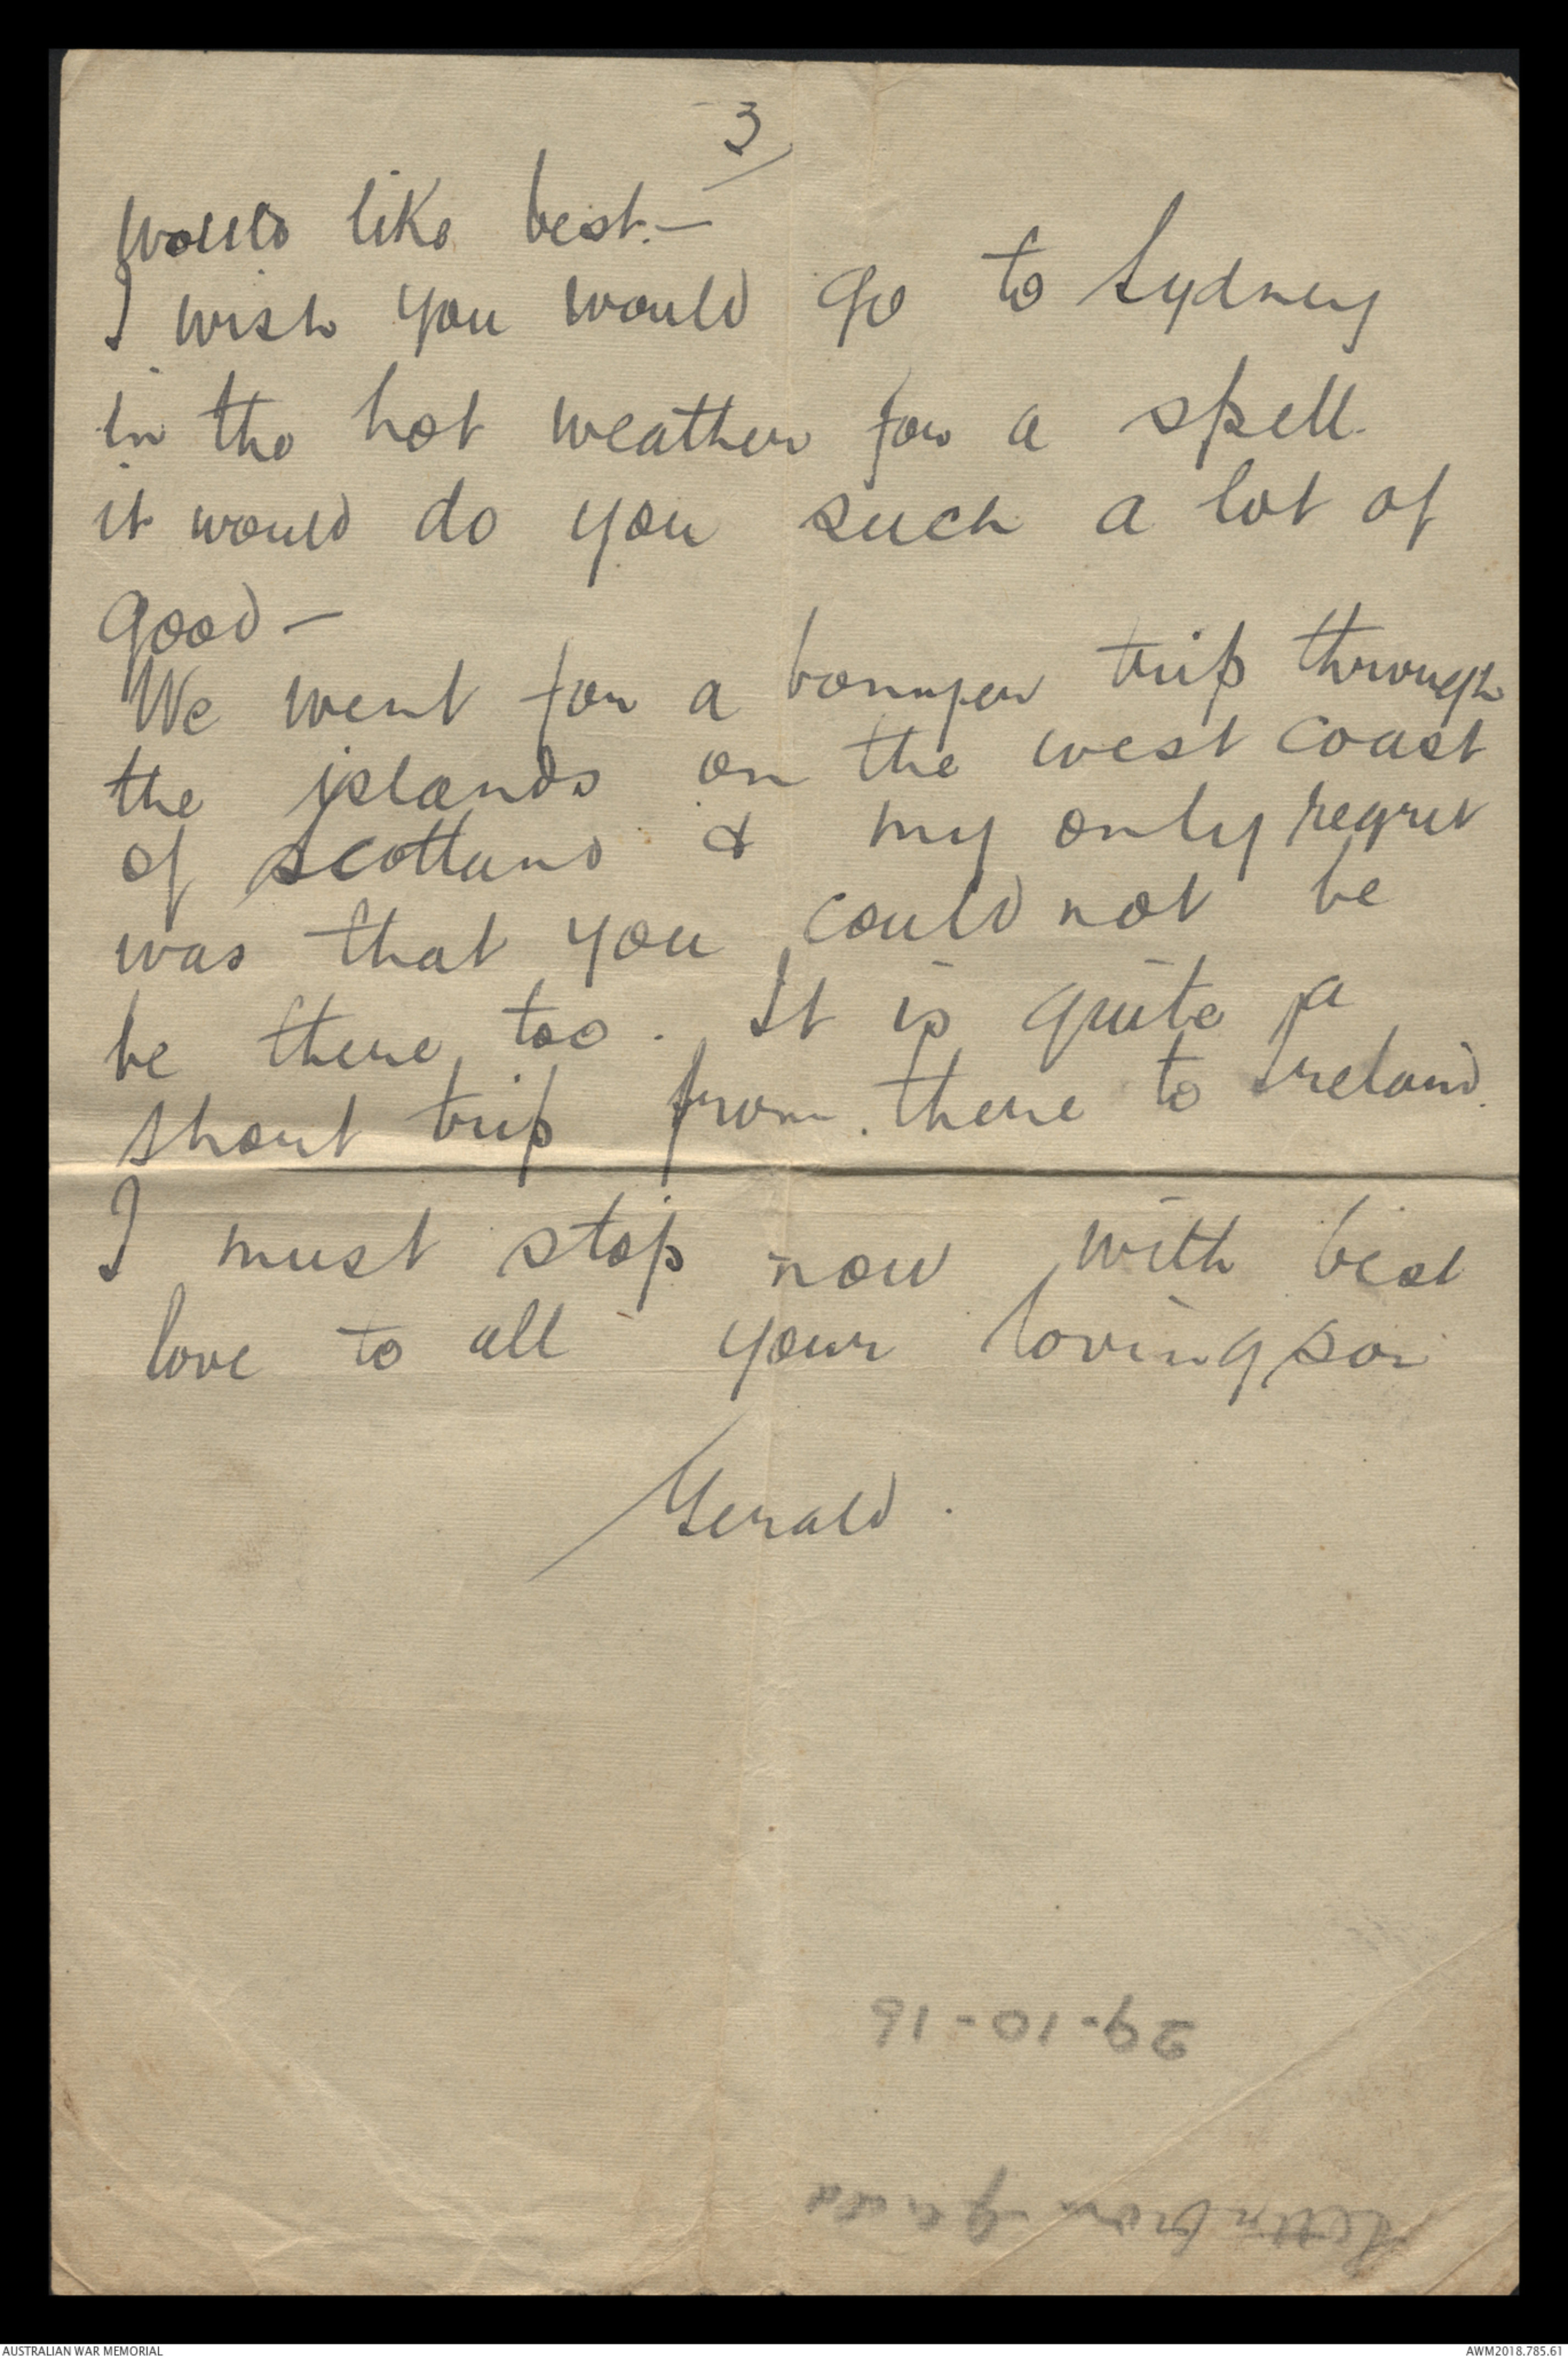 3
would like best.—
I wish you would go to Sydney
in the hot weather for a spell.
it would do you such a lot of
good —
We went for a bonnzer trip through
the islands on the west coast
of Scotland & my only regret
was that you could not be
be there too. It is quite a
short trip from there to Ireland.
I must stop now with best
love to all your loving son
Gerald.
29-10-16
Letter from Gerald
AUSTRALIAN WAR MEMORIAL
AWM2018.785.61